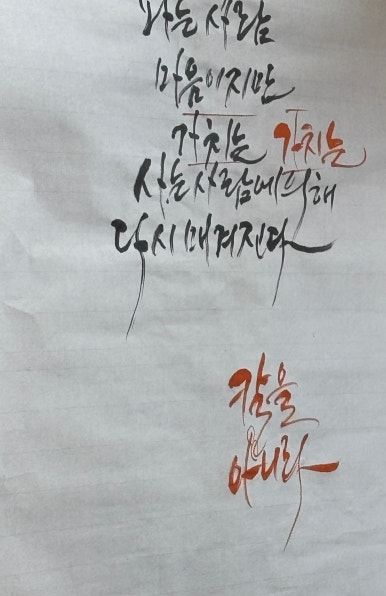 파는 사람
마음이지만
가치는 가치는
사는 사람에 의해
다시 매겨진다
값을
아니라